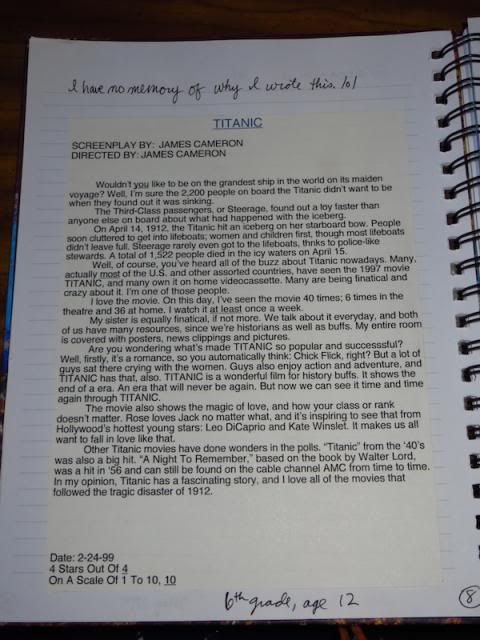 I have no memory of why I wrote this. lol
TITANIC
SCREENPLAY BY: JAMES CAMERON
DIRECTED BY: JAMES CAMERON
Wouldn't you like to be on the grandest ship in the world on its maiden
voyage? Well, I'm sure the 2,200 people on board the Titanic didn't want to be
when they found out it was sinking.
The Third-Class passengers, or Steerage, found out a loy faster than
anyone else on board about what had happened with the iceberg.
On April 14, 1912, the Titanic hit an iceberg on her starboard bow. People
soon cluttered to get into lifeboats; women and children first, though most lifeboats
didn't leave full. Steerage rarely even got to the lifeboats, thnks to police-like
stewards. A total of 1,522 people died in the icy waters on April 15.
Well, of course, you've heard all of the buzz about Titanic nowadays. Many,
actually most of the U.S. and other assorted countries, have seen the 1997 movie
TITANIC, and many own it on home videocassette. Many are being finatical and
crazy about it. I'm one of those people.
I love the movie. On this day, I've seen the movie 40 times; 6 times in the
theatre and 36 at home. I watch it at least once a week.
My sister is equally finatical, if not more. We talk about it everyday, and both
of us have many resources, since we're historians as well as buffs. My entire room
is covered with posters, news clippings and pictures.
Are you wondering what's made TITANIC so popular and successsful?
Well, firstly, it's a romance, so you automatically think: Chick Flick, right? But a lot of
guys sat there crying with the women. Guys also enjoy action and adventure, and
TITANIC has that, also. TITANIC is a wonderful film for history buffs. It shows the
end of a era. An era that will never be again. But now we can see it time and time
again through TITANIC.
The movie also shows the magic of love, and how your class or rank
doesn't matter. Rose loves Jack no matter what, and it's inspiring to see that from
Hollywood's hottest young stars: Leo DiCaprio and Kate Winslet. It makes us all
want to fall in love like that.
Other Titanic movies have done wonders in the polls. "Titanic" from the '40's
was also a big hit. "A Night To Remember," based on the book by Walter Lord,
was a hit in '56 and can still be found on the cable channel AMC from time to time.
In my opinion, Titanic has a fascinating story, and I love all of the movies that
followed the tragic disaster of 1912.
Date: 2-24-99
4 Stars Out Of 4
On A Scale Of 1 To 10, 10
6th grade, age 12
8